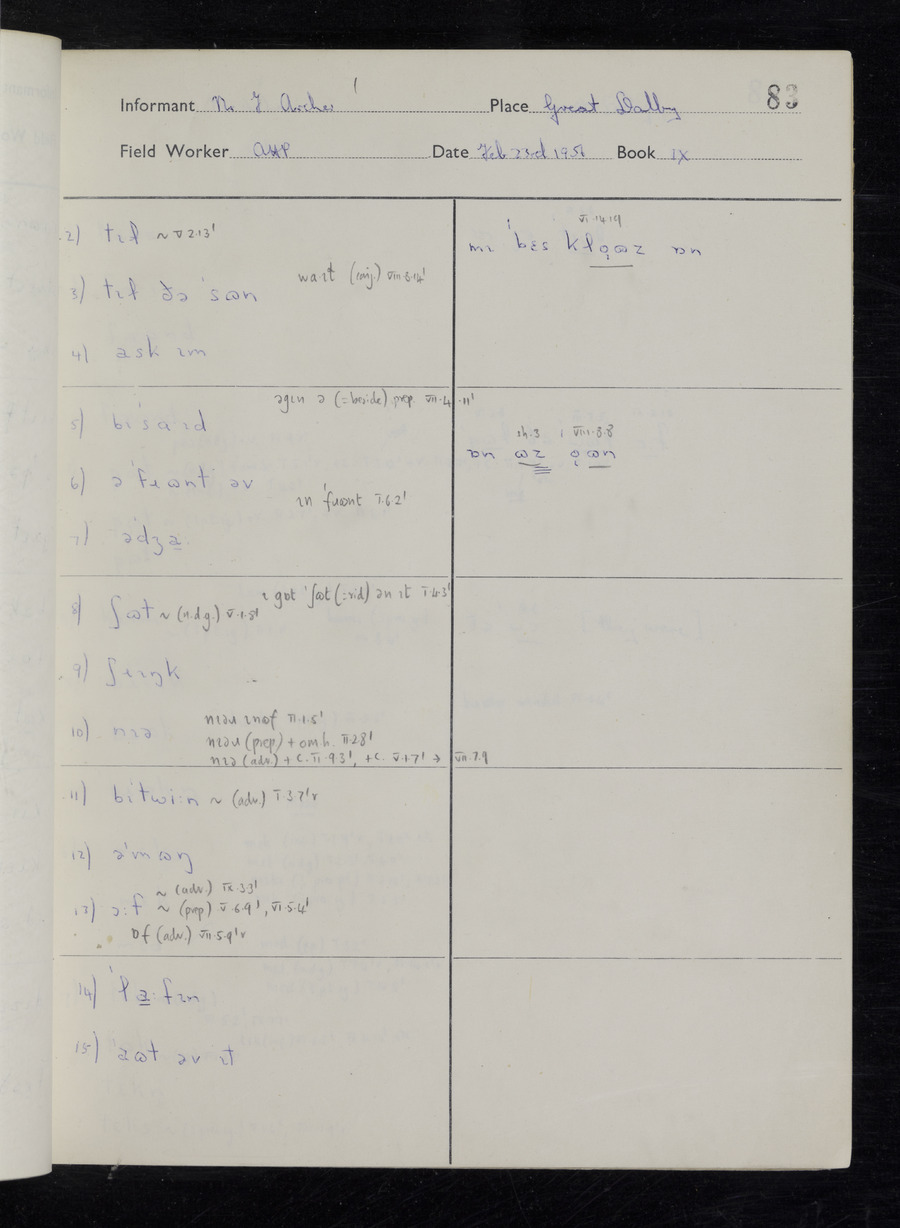 83
Informant Mr J Archer Place Great Dalby
Field Worker Date Feb 23rd 1951 Book IX
2) tɪɫ ~ V.2.13'
waɪt (conj.) VIII.8.14'
3) tɪɫ ðə 'sɷn
4) ask ɪm
əgɪn ə (=beside) prep. VII.4.11'
5) bɪ'saɪd
6) ə'fɹɷnt əv
ɪn 'fɹɷnt I.6.2'
7)
ɪ got 'ʃɷt (=rid) ən ɪt I.4.3'
8) ʃɷt ~ (n.d.g.) V.1.5'
9) ʃɹɪŋk
10) nɪə
nɪəɹ ɪnof II.1.5'
nɪəɹ (prep) + om.h. II.2.8'
nɪə (adv.) + C. II.9.3', +C. V.7.7' → VII.7.9
11) bɪtwi:n ~ (adv.) I.3.7'r
12) ə'mɷŋ
~ (adv.) IX.3.3'
13) ɔ:f ~ (prep) V.6.9', VI.5.4'
ɒf (adv.) VII.5.9'r
14) 'ɫa̳:fɪn
15) aɷt əv ɪt
VI.14.19
mɪ 'bɛs kɫo̜ɷz ɒn
sh.3 | VIII.8.8
ɒn ɷz o̜ɷn